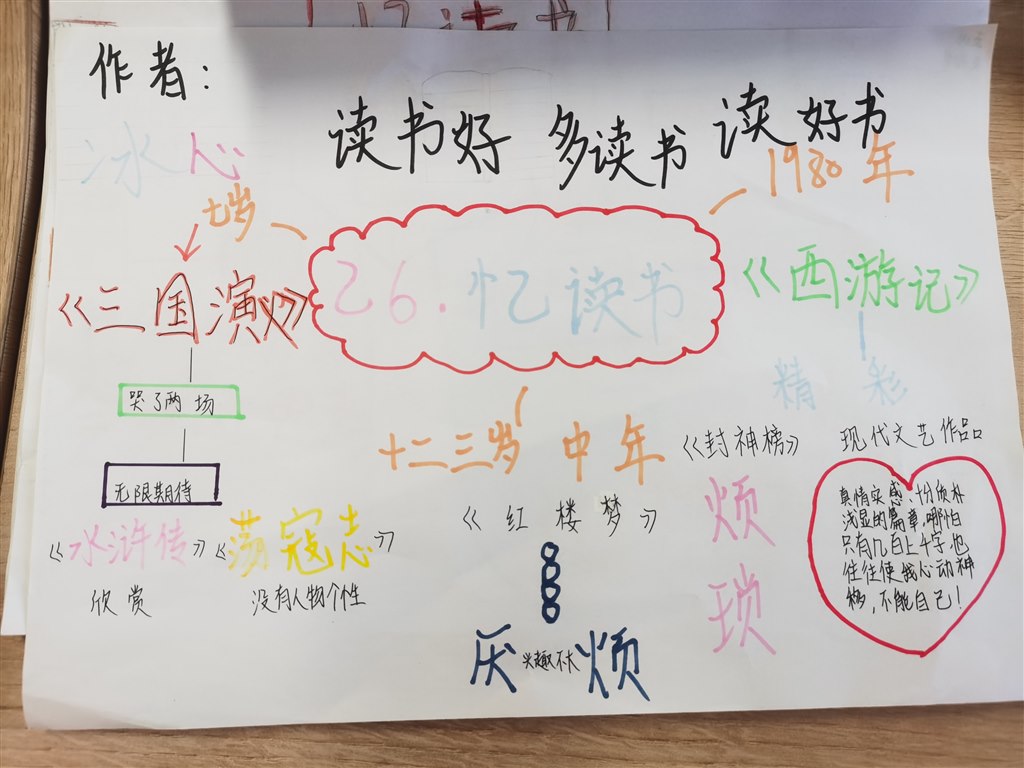 作者：
读书好 多读书 读好书
冰心
1980年
七岁
《三国演义》
26.忆读书
《西游记》
精彩
哭了两场
十二三岁 中年
《封神榜》
现代文艺作品
无限期待
烦琐
真情实感、十份质朴
浅显的篇章，哪怕
只有几百上千字，也
往往使我心动神
移，不能自己！
《水浒传》《荡寇志》
《红楼梦》
欣赏
没有人物个性
厌烦
兴趣不大